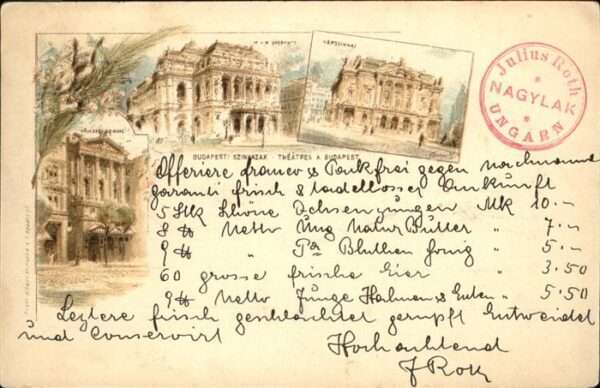 Julius Roth
NAGYLAK
UNGARN
VÍGSZINHÁZ
BUDAPESTI SZINHÁZAK - THÉÂTRES A BUDAPEST
Offeriere franco & Packfrei gegen nachmanme
garanti frisch & tadellosser Ankunft
5 Stk Schöne Ochsenzungen Mk 10.–
8 ℔ Netto Ung Natur Butter " 7.–
9 ℔ " Pa Blüthen honig " 5.–
60 grosse frische Eier " 3.50
9 ℔ Netto Junge Hahnen & Enten " 5.50
Leztere frisch geschlachtet gerupft Entweidet
und Conservirt
Hochachtend
J Roth